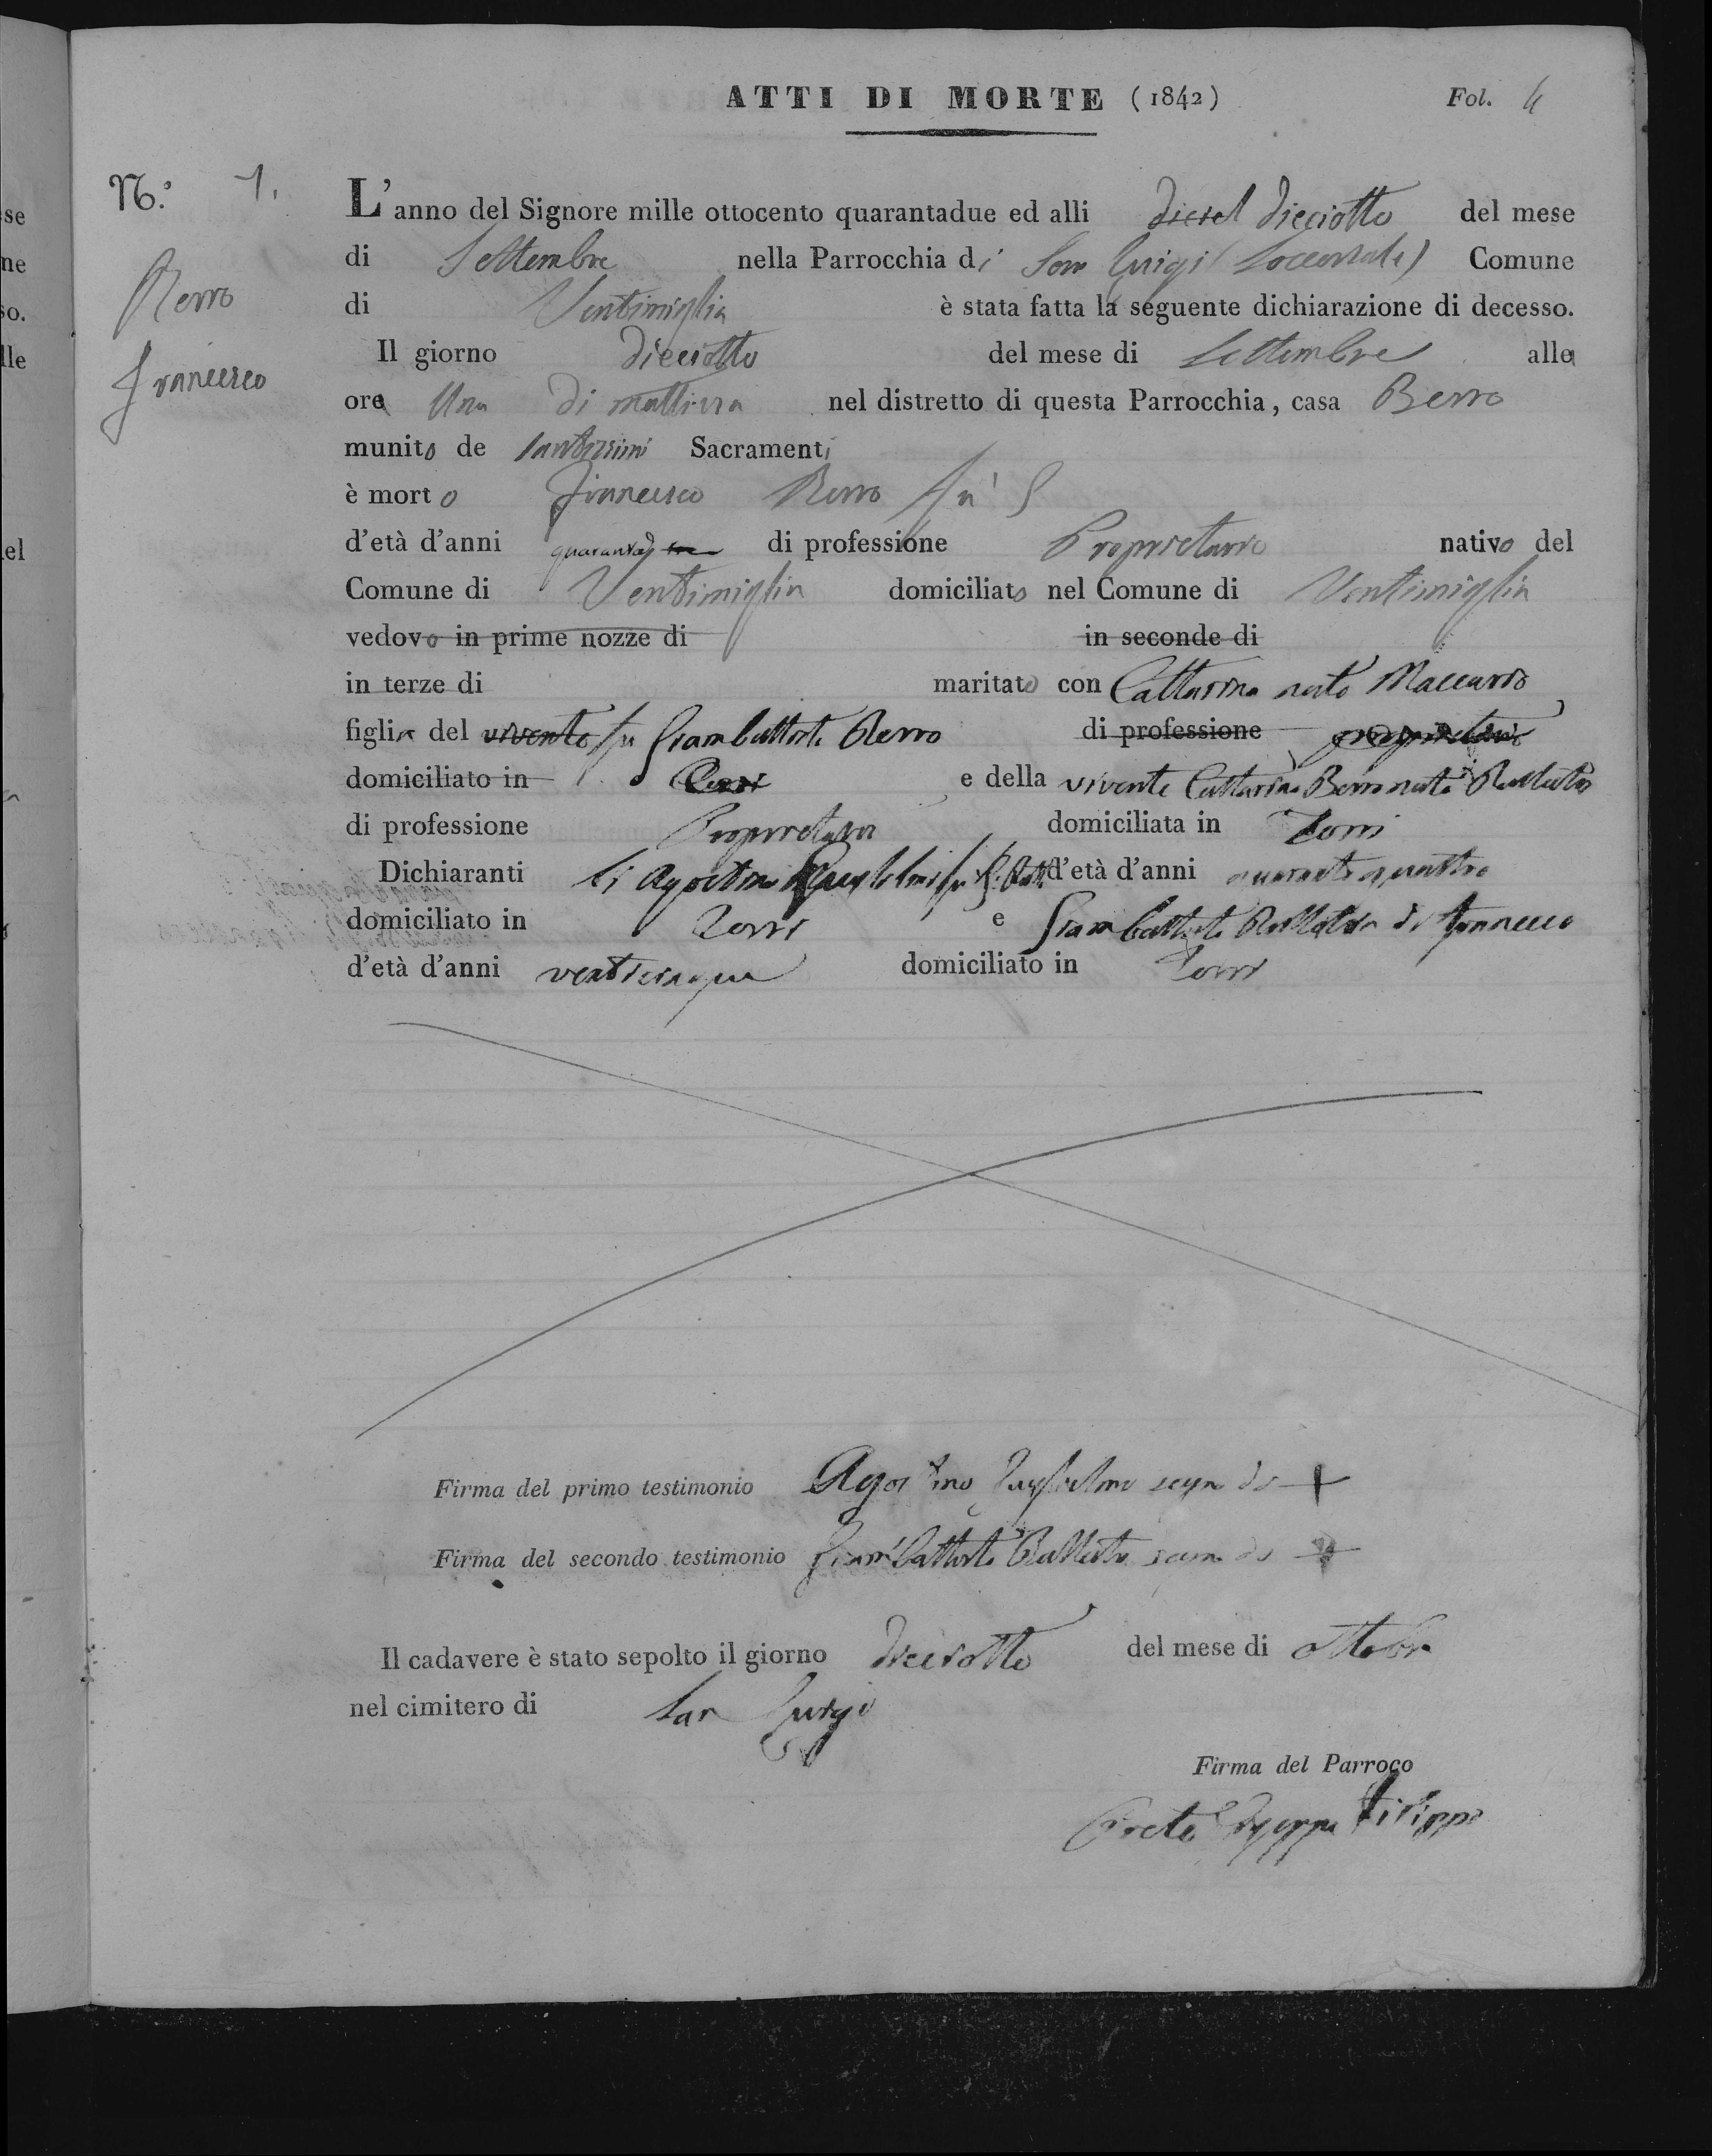 ATTI DI MORTE (1842) Fol. 4
No: 1.
Berro
Francesco
L'anno del Signore mille ottocento quarantadue ed alli dieciotto del mese
di Settembre nella Parrocchia di San Luigi Comune
di Ventimiglia è stata fatta la seguente dichiarazione di decesso.
Il giorno dieciotto del mese di Settembre alla
ora Una di mattina nel distretto di questa Parrocchia, casa Berro
munito de santissimi Sacramenti
è morto Francesco Berro fu
d'età d'anni quaranta di professione Proprietario nativo del
Comune di Ventimiglia domiciliato nel Comune di Ventimiglia
vedovo in prime nozze di in seconde di
in terze di maritato con Cattarina nata Maccario
figlio del vivente fu Giambattista Berro di professione proprietario
domiciliato in Torri e della vivente Cattarina Berro nata
di professione Proprietaria domiciliata in Torri
Dichiaranti Agostino Guglielmi fu d'età d'anni quarantaquattro
domiciliato in Torri e Giambattista di Francesco
d'età d'anni venticinque domiciliato in Torri
Firma del primo testimonio Agostino Guglielmi segna do +
Firma del secondo testimonio Giambattista segna do +
Il cadavere è stato sepolto il giorno dieciotto del mese di ottobre
nel cimitero di San Luigi
Firma del Parroco
Prete Filippi
se
ne
so.
lle
el